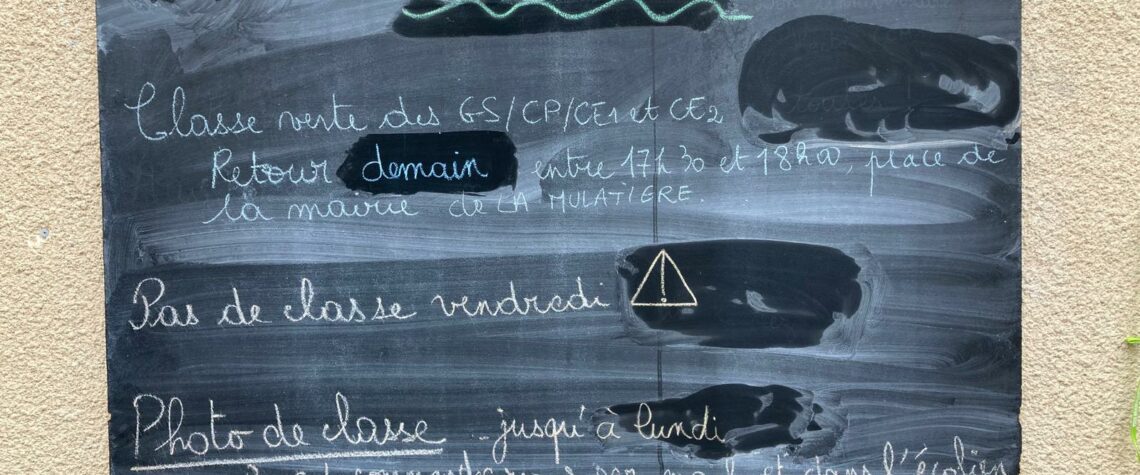 Classe verte des GS/CP/CE1 et CE2
Retour demain entre 17h30 et 18h00, place de
la mairie de LA MULATIERE.
Pas de classe vendredi
Photo de classe jusqu'à lundi
et dans l'écolien